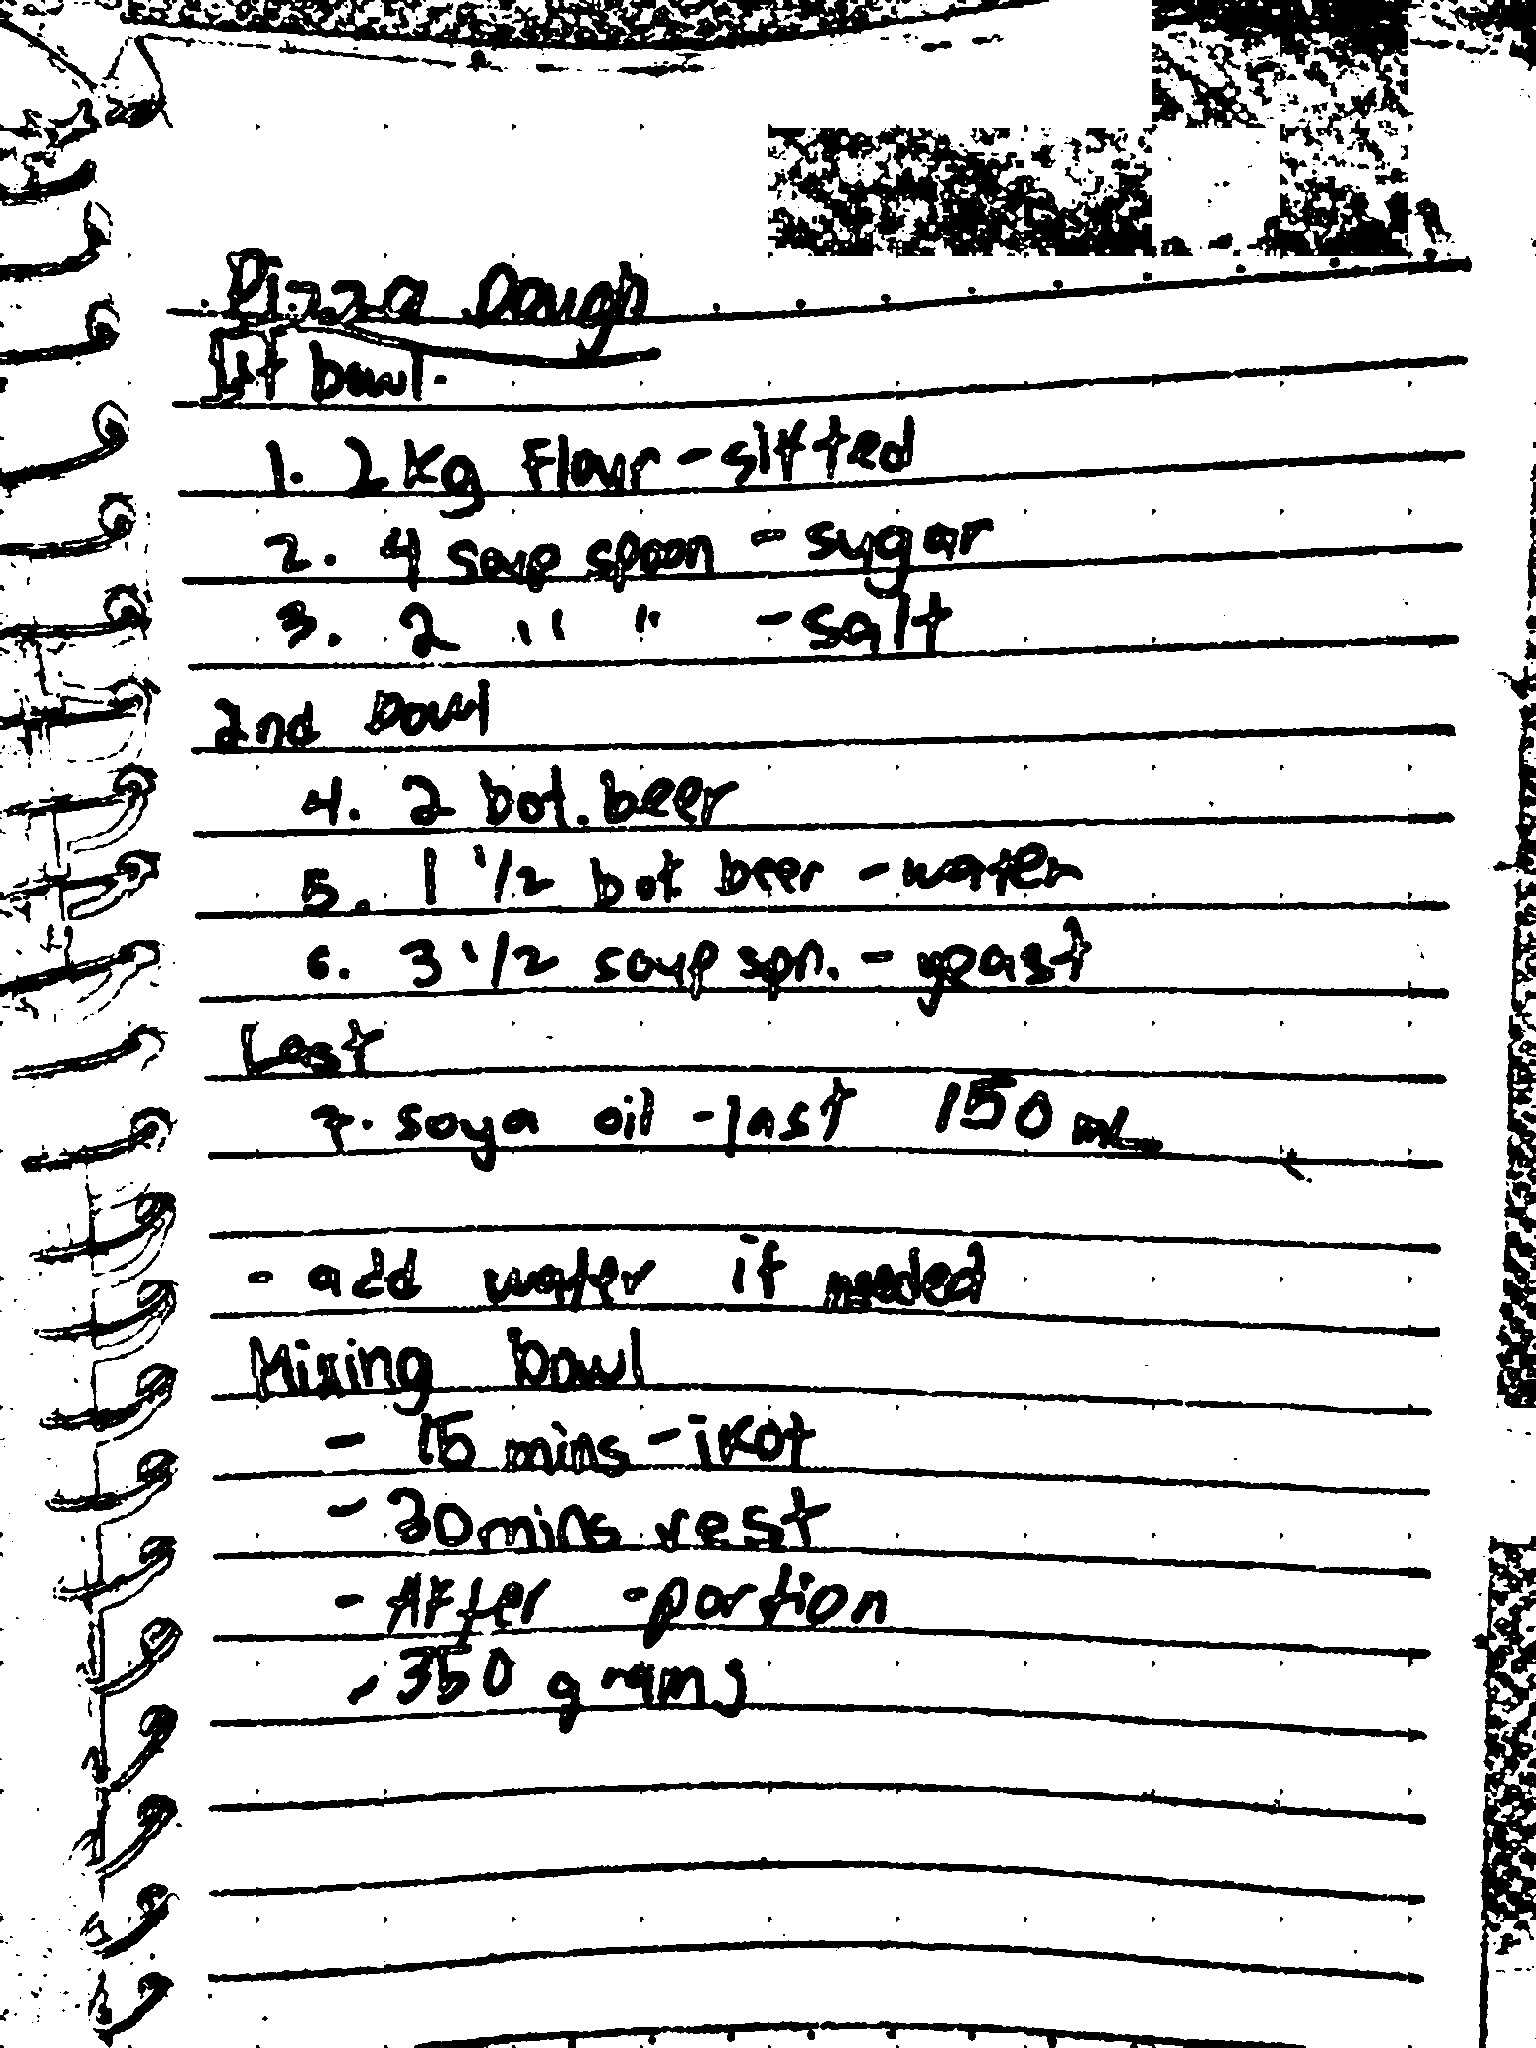 Pizza Dough
1st bowl.
1. 2 kg Flour - sifted
2. 4 soup spoon - sugar
3. 2 " " - salt
2nd bowl
4. 2 bot. beer
5. 1 1/2 bot beer - water
6. 3 1/2 soup spn. - yeast
Last
7. soya oil - last 150 mL
- add water if needed
Mixing bowl
- 15 mins - ikot
- 20 mins rest
- After - portion
- 350 grams